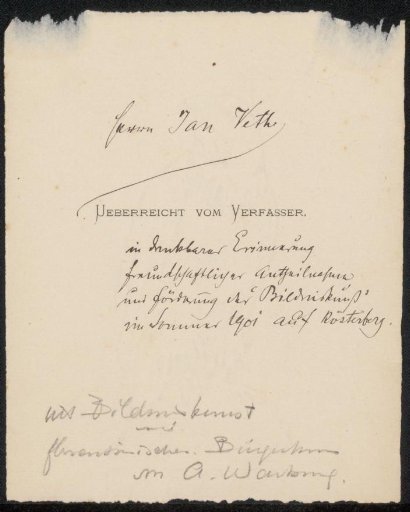 Herrn Jan Veth
UEBERREICHT VOM VERFASSER.
in dankbarer Erinnerung
freundschaftlicher Antheilnahme
und Förderung der "Bildniskunst"
im Sommer 1901 auf Rösterberg.
uit Bildniskunst
und
florentinisches Bürgertum
von A. Warburg.